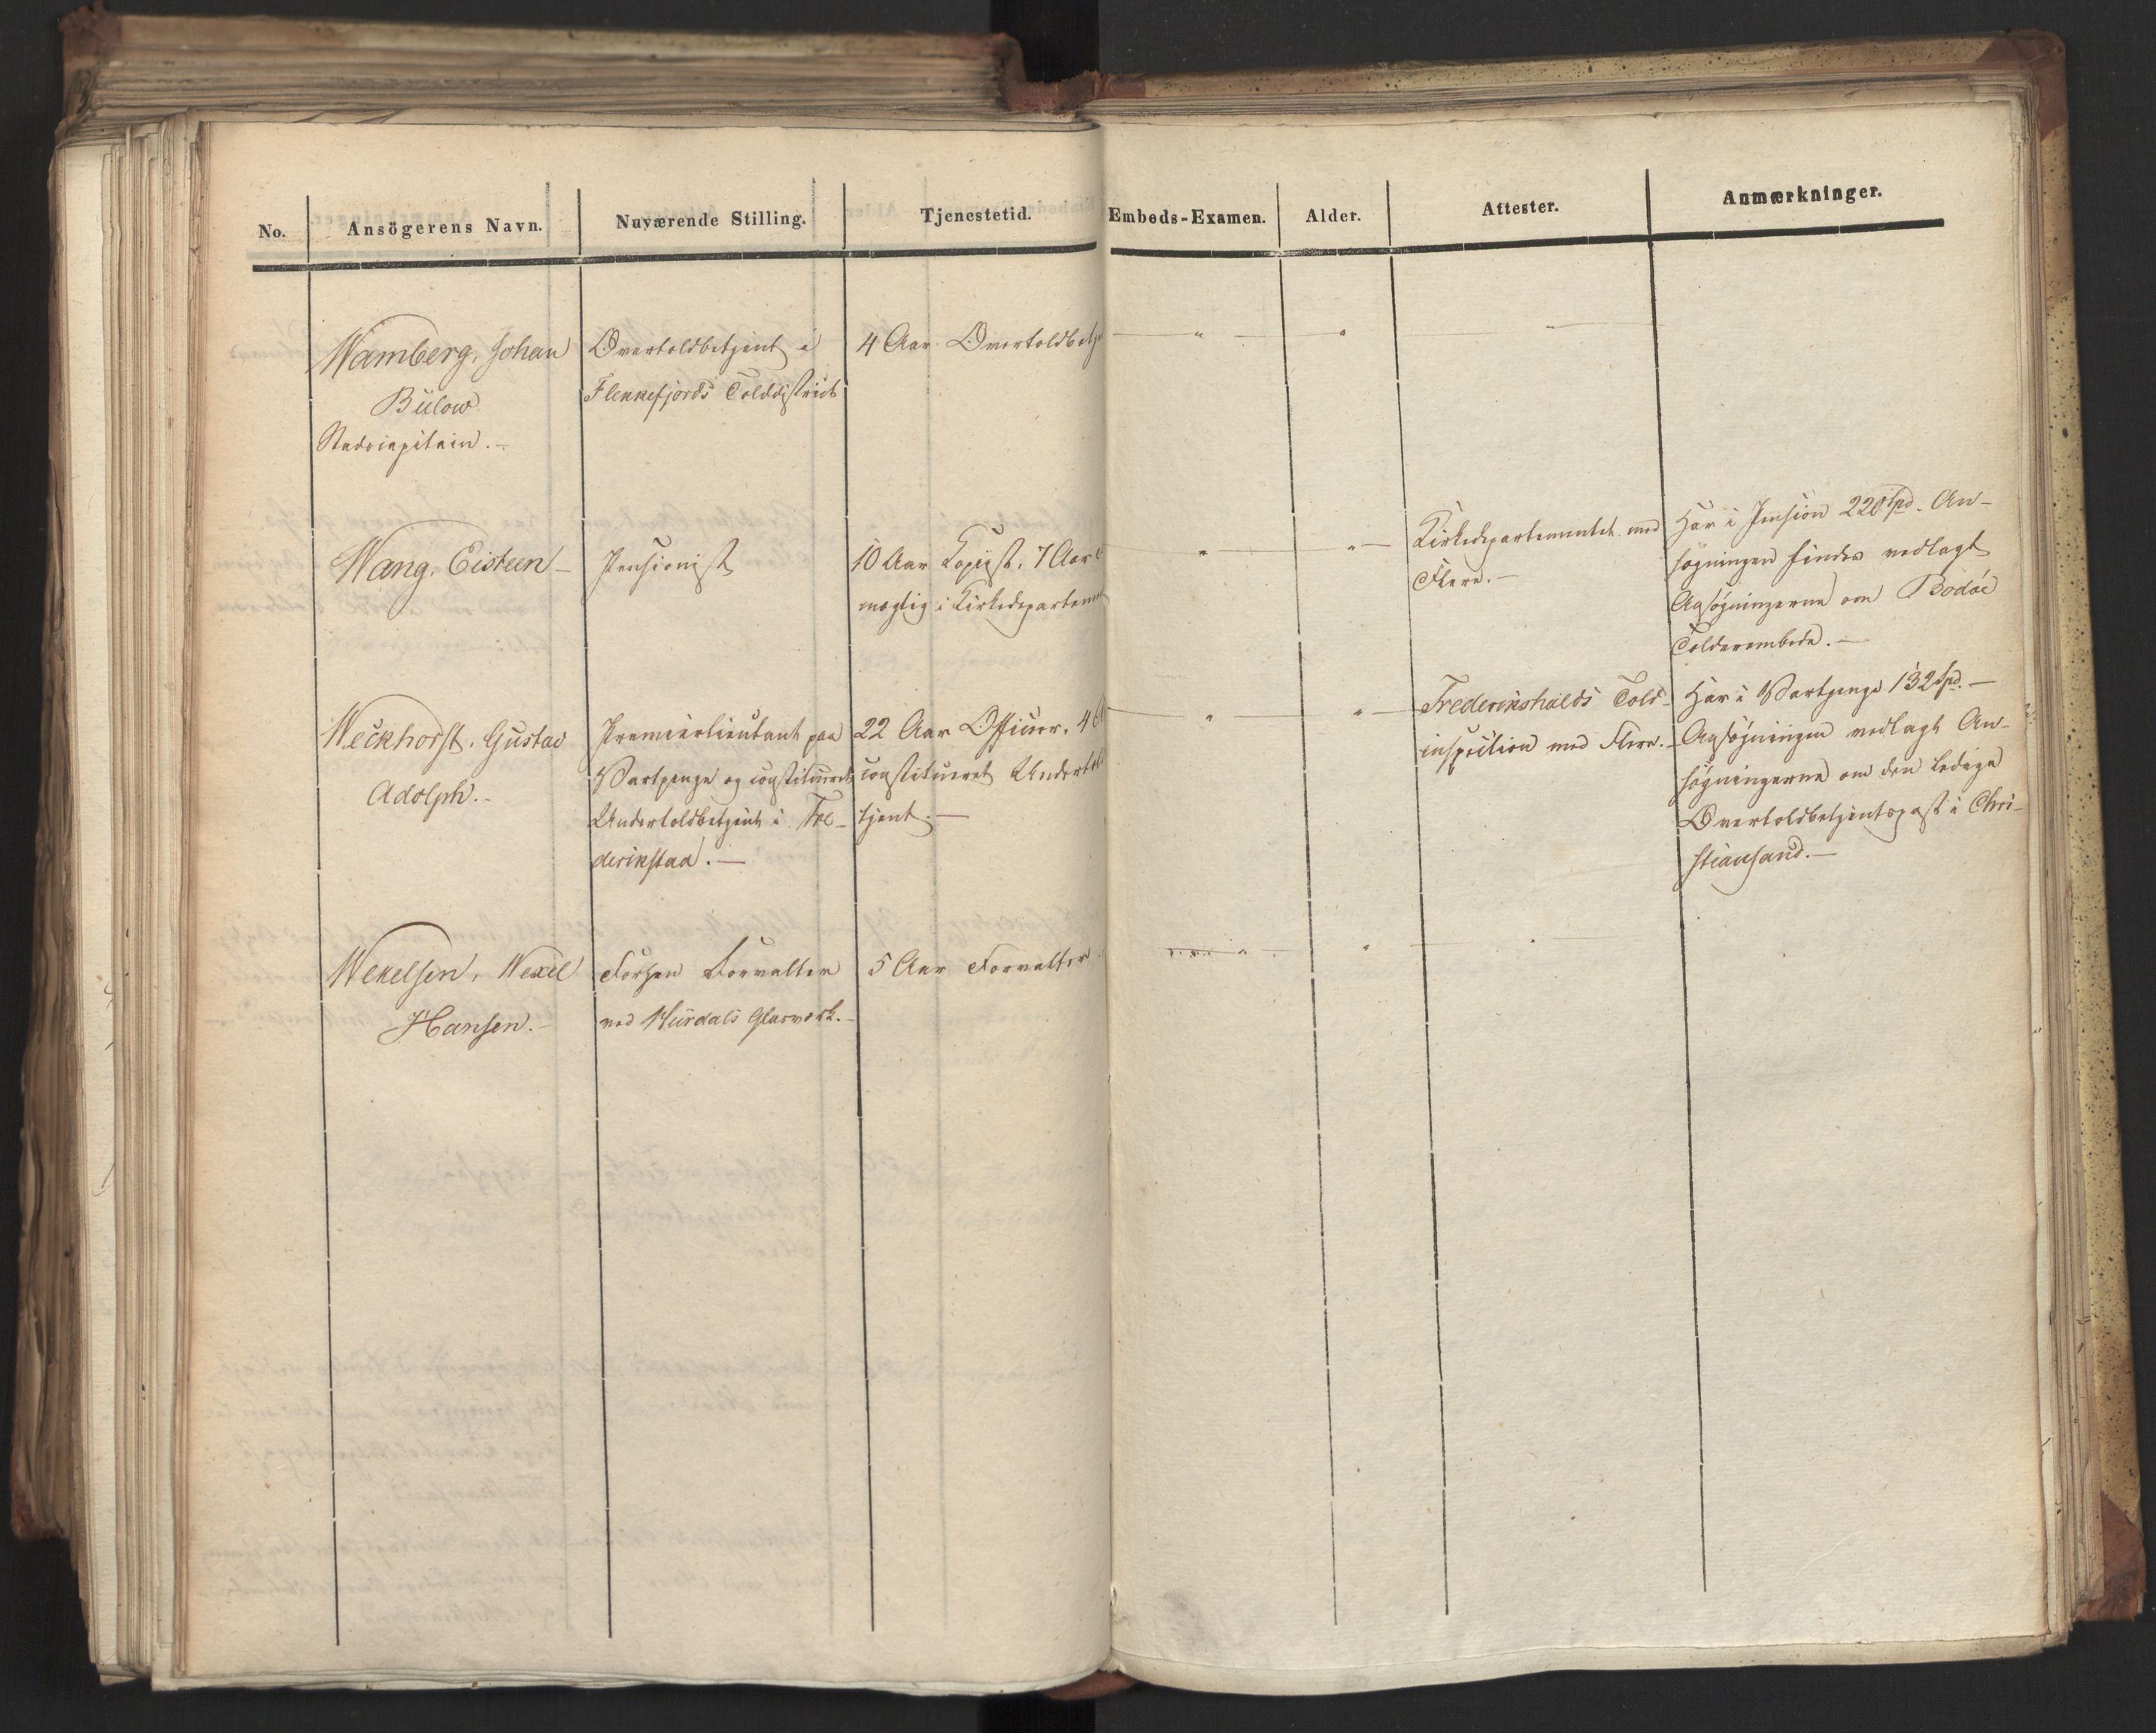 No.
Ansögerens Navn.
Nuværende Stilling.
Tjenestetid.
Embeds-Examen.
Alder.
Attester.
Anmærkninger.
Wamberg, Johan
Bülow
Stadscapitain.-
Overtoldbetjent i
Flekkefjords Tolddistrict
4 Aar Overtoldbetje
"
"
"
Wang, Eisteen-
Pensionist
10 Aar Kopiist, 7 Aar
mægtig i Kirkedepartem
"
"
Kirkedepartementet med
Flere.-
Har i Pension 220 Spd. An-
søgningen findes vedlagt
Ansøgningerne om Bodøe
Tolderembede.-
Weckhorst, Gustav
Adolph.-
Premierlieutenant paa
Vartpenge og constitueret
Undertoldbetjent i Fre-
derikstad.-
22 Aar Officier, 4
constitueret Undertol
tjent.-
"
"
Frederikshalds Told-
inspection med Flere.-
Har i Vartpenge 132 Spd.-
Ansøgningen vedlagt An-
søgningerne om den ledige
Overtoldbetjentspost i Chri-
stiansand.-
Wexelsen, Wexel
Hansen.-
Forhen Forvalter
ved Hurdals Glasværk.-
5 Aar Forvalter
"
"
"